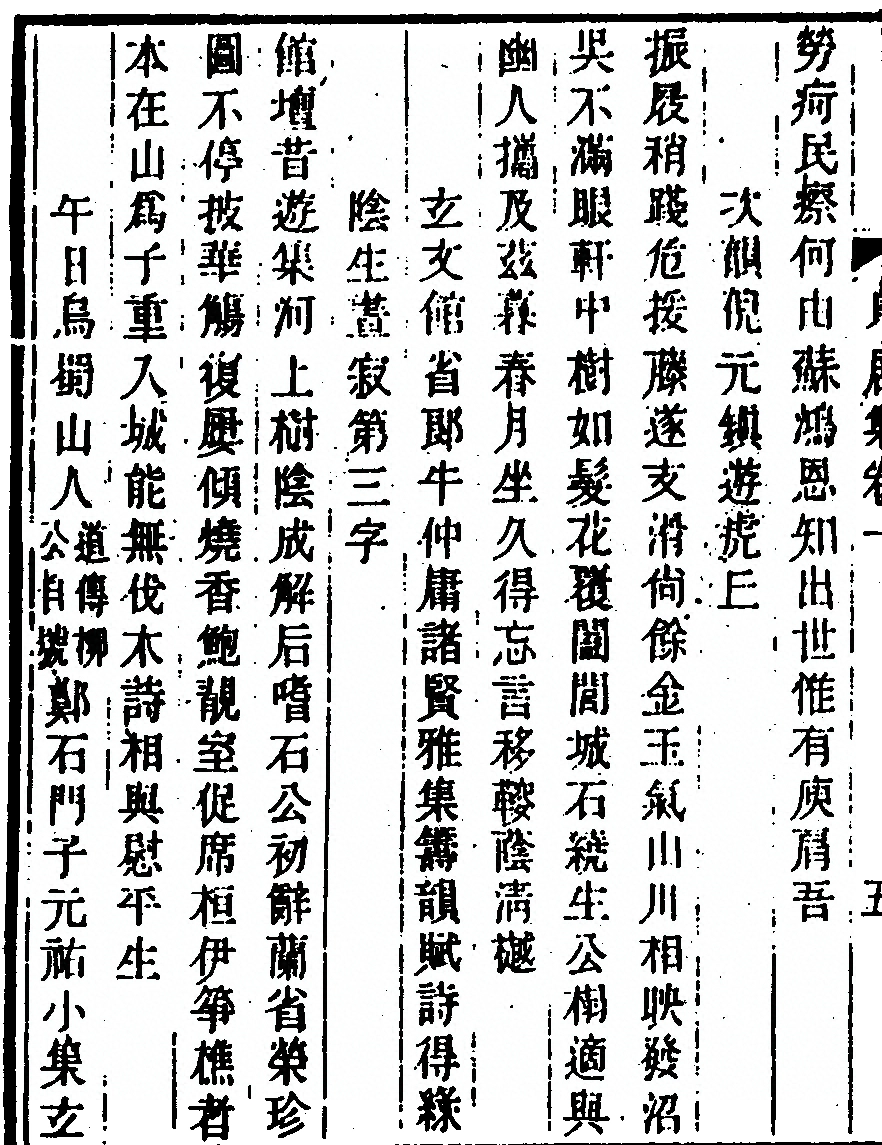 居集卷一 五
勞疴民瘵何由蘇鴻恩知出世惟有庾肩吾
次韻倪元鎮遊虎丘
振屐稍踐危援藤遂支滑尙餘金玉氣山川相映發沼
吳不滿眼軒中樹如髮花覆闔閭城石繞生公榻適與
幽人攜及茲暮春月坐久得忘言移鞍陰淸樾
玄文館省郎牛仲庸諸賢雅集籌韻賦詩得綠
陰生晝寂第三字
館壇昔遊集河上樹陰成解后嗜石公初辭蘭省榮珍
圖不停披華觴復屢傾燒香鮑靚室促席桓伊箏樵者
本在山爲子重入城能無伐木詩相與慰平生
午日烏蜀山人道傳柳公自號鄭石門子元祐小集玄